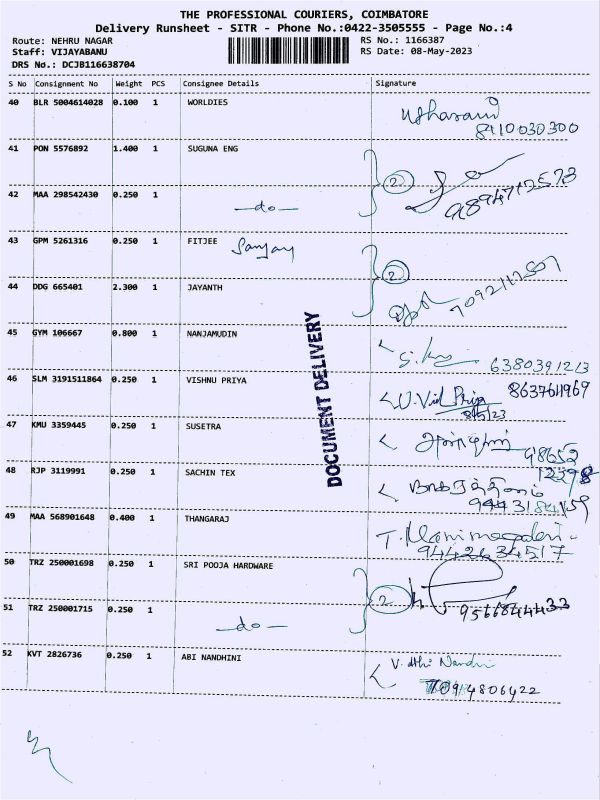 THE PROFESSIONAL COURIERS, COIMBATORE
Delivery Runsheet - SITR - Phone No.:0422-3505555 - Page No.:4
Route: NEHRU NAGAR
RS No.: 1166387
Staff: VIJAYABANU
RS Date: 08-May-2023
DRS No.: DCJB116638704
S No Consignment No Weight PCS Consignee Details Signature
40 BLR 5004614028 0.100 1 WORLDIES
8410030300
41 PON 5576892 1.400 1 SUGUNA ENG
2
42 MAA 298542430 0.250 1
—do—
43 GPM 5261316 0.250 1 FITJEE Sanjay
2
44 DDG 665401 2.300 1 JAYANTH
45 GYM 106667 0.800 1 NANJAMUDIN
6380391213
DOCUMENT DELIVERY
46 SLM 3191511864 0.250 1 VISHNU PRIYA
8637611969
8/5/23
47 KMU 3359445 0.250 1 SUSETRA
98652
12398
48 RJP 3119991 0.250 1 SACHIN TEX
9443184159
49 MAA 568901648 0.400 1 THANGARAJ
9442634517
50 TRZ 250001698 0.250 1 SRI POOJA HARDWARE
2
9566844433
51 TRZ 250001715 0.250 1
—do—
52 KVT 2826736 0.250 1 ABI NANDHINI
4806422